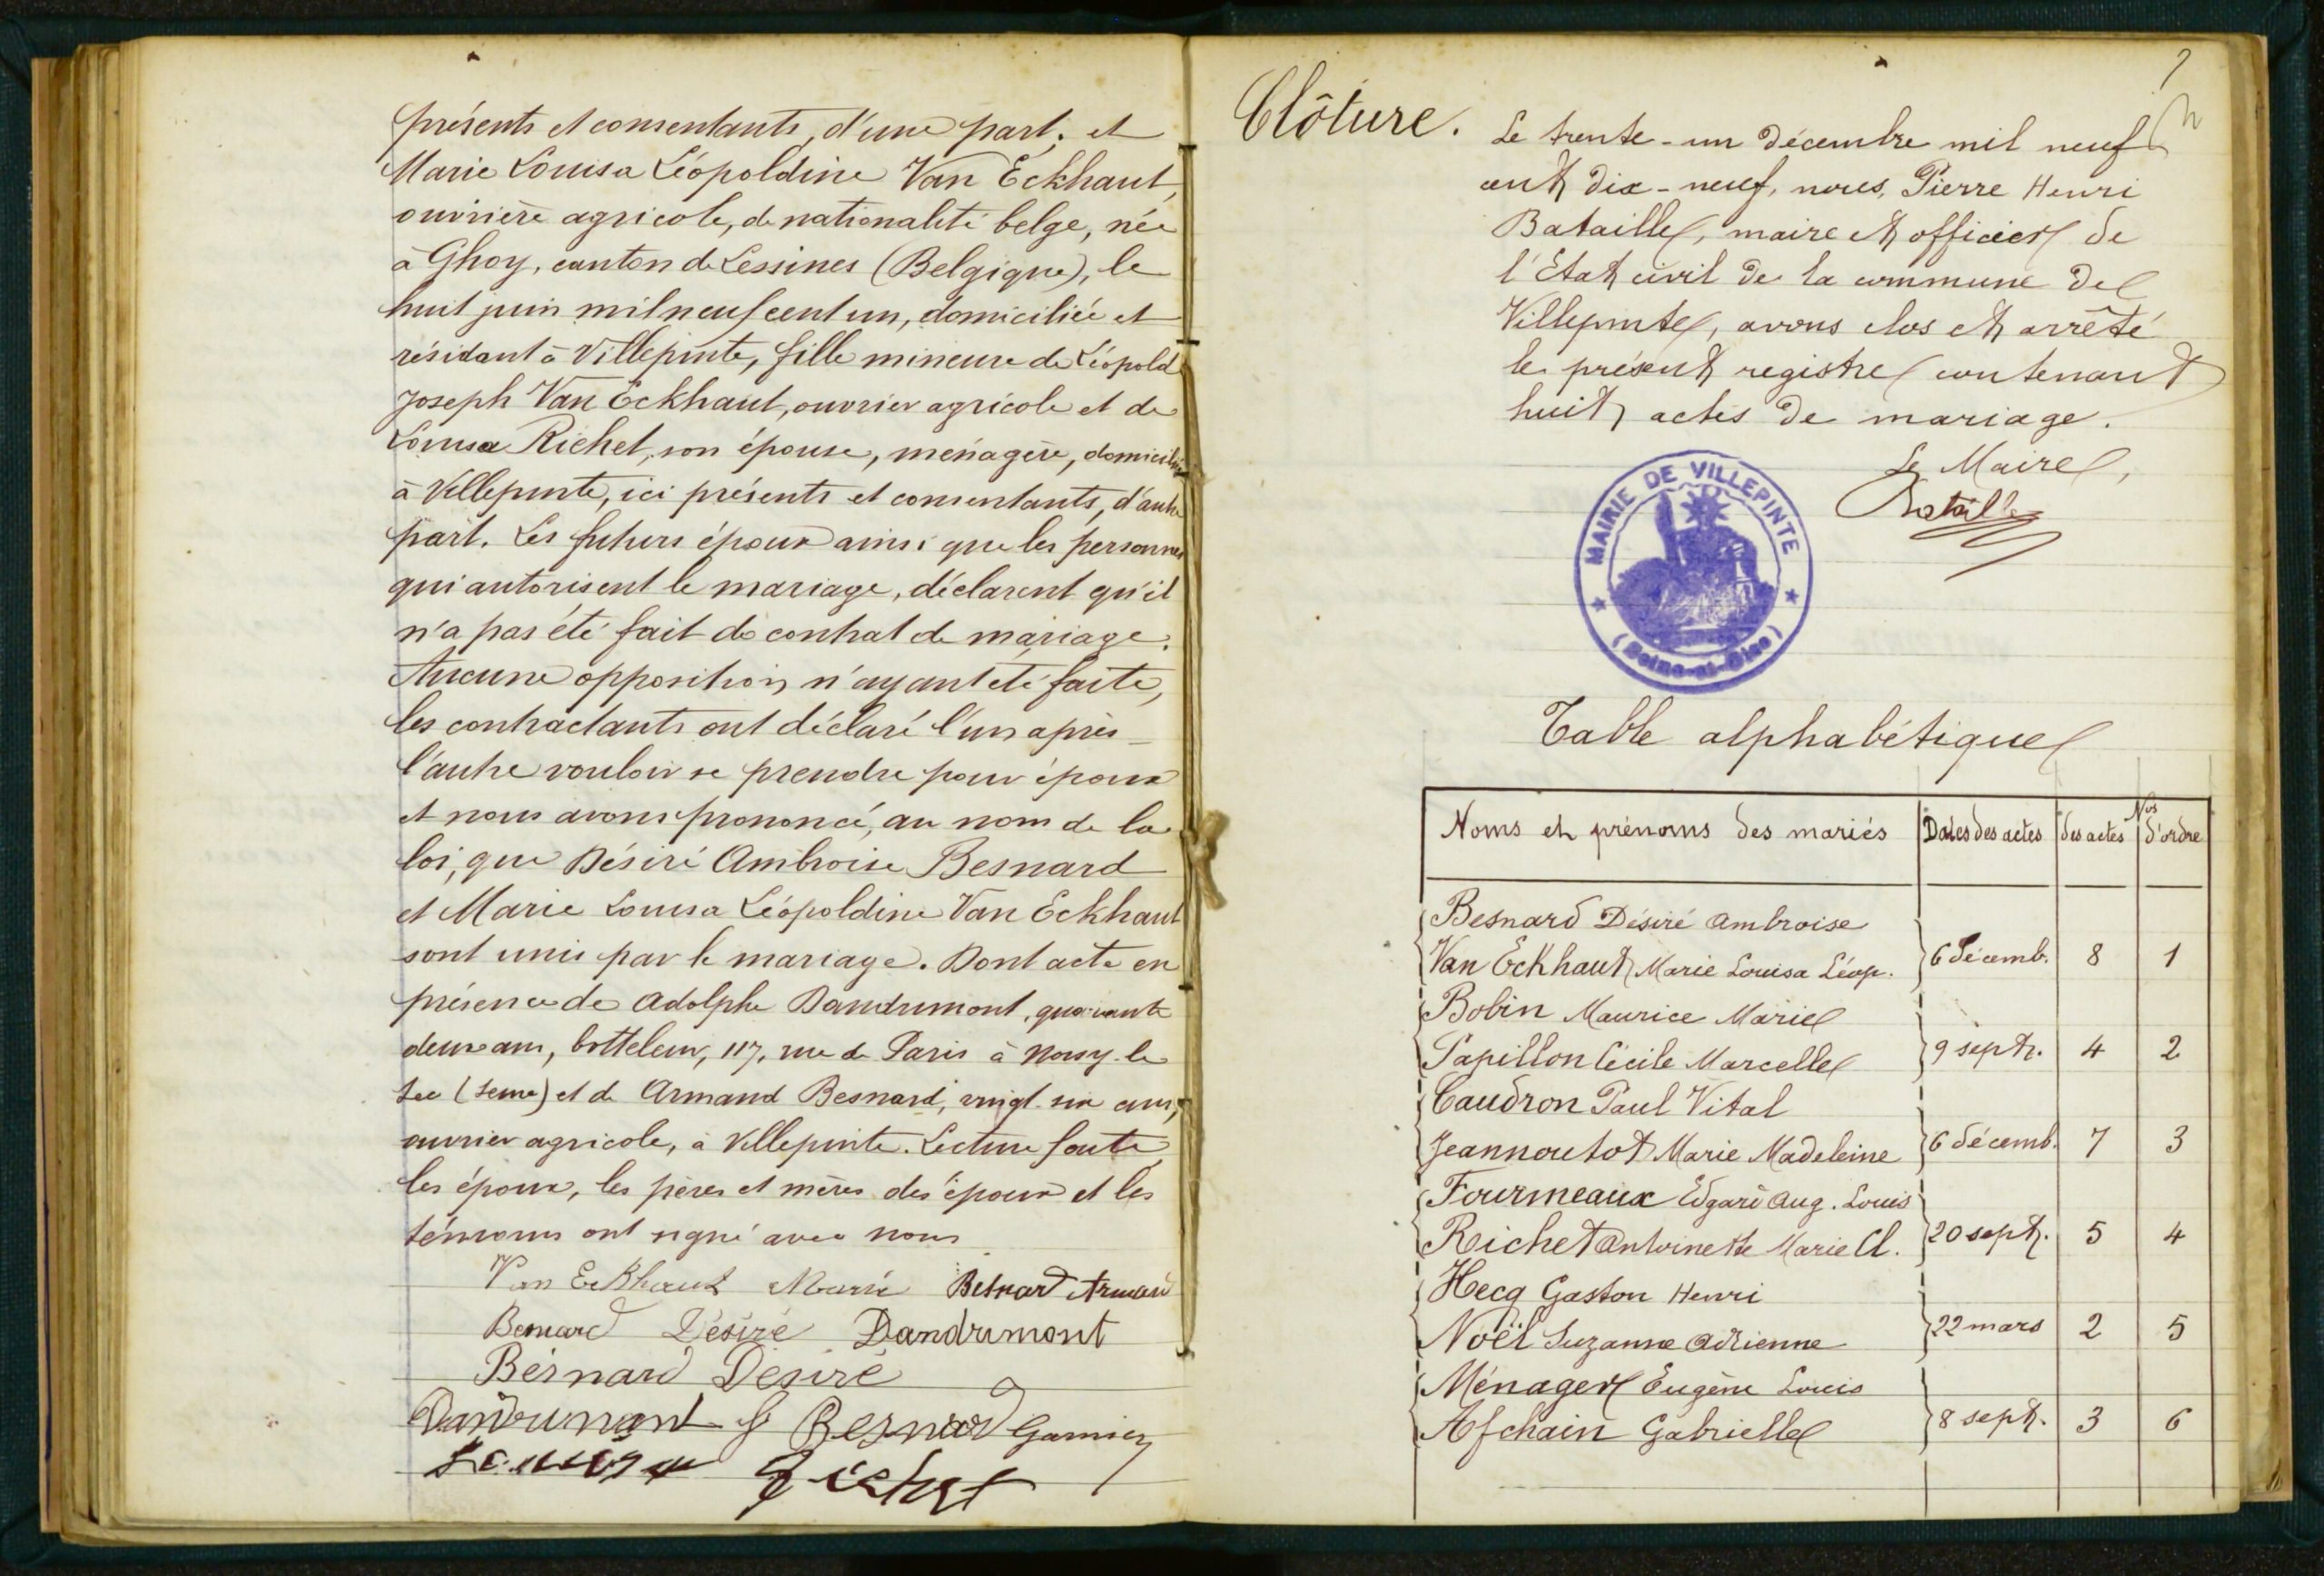 présents et consentants, d'une part; et
Marie Louisa Léopoldine Van Eckhaut,
ouvrière agricole, de nationalité belge, née
à Ghoy, canton de Lessines (Belgique), le
huit juin mil neuf cent un, domiciliée et
résidant à Villepinte, fille mineure de Léopold
Joseph Van Eckhaut, ouvrier agricole et de
Louisa Richet, son épouse, ménagère, domiciliés
à Villepinte, ici présents et consentants, d'autre
part. Les futurs époux ainsi que les personnes
qui autorisent le mariage, déclarent qu'il
n'a pas été fait de contrat de mariage.
Aucune opposition n'ayant été faite,
les contractants ont déclaré l'un après
l'autre vouloir se prendre pour époux
et nous avons prononcé, au nom de la
loi, que Désiré Ambroise Besnard
et Marie Louisa Léopoldine Van Eckhaut
sont unis par le mariage. Dont acte en
présence de Adolphe Dandrimont, quarante
deux ans, botteleur, 117, rue de Paris à Noisy-le
Sec (Seine) et de Armand Besnard, vingt-six ans,
ouvrier agricole, à Villepinte. Lecture faite
les époux, les pères et mères des époux et les
témoins ont signé avec nous
Van Eckhaut Marie Besnard Armand
Besnard Désiré Dandrimont
Besnard Désiré
Dandrimont Besnard Garnier
Louisa Richet
Clôture.
Le trente-un décembre mil neuf
cent dix-neuf, nous, Pierre Henri
Bataille, maire et officier de
l'Etat civil de la commune de
Villepinte, avons clos et arrêté
le présent registre contenant
huit actes de mariage.
Le Maire,
Bataille
MAIRIE DE VILLEPINTE
(Seine-et-Oise)
Table alphabétique
Noms et prénoms des mariés Dates des actes Nos des actes d'ordre
Besnard Désiré Ambroise
Van Eckhaut Marie Louisa Léop. 6 décemb. 8 1
Bobin Maurice Marie
Papillon Cécile Marcelle 9 sept. 4 2
Caudron Paul Vital
Jeannoutot Marie Madeleine 6 décemb. 7 3
Fourmeaux Edgard Aug. Louis
Richet Antoinette Marie Cl. 20 sept. 5 4
Hecq Gaston Henri
Noël Suzanne Adrienne 22 mars 2 5
Ménager Eugène Louis
Afchain Gabrielle 8 sept. 3 6